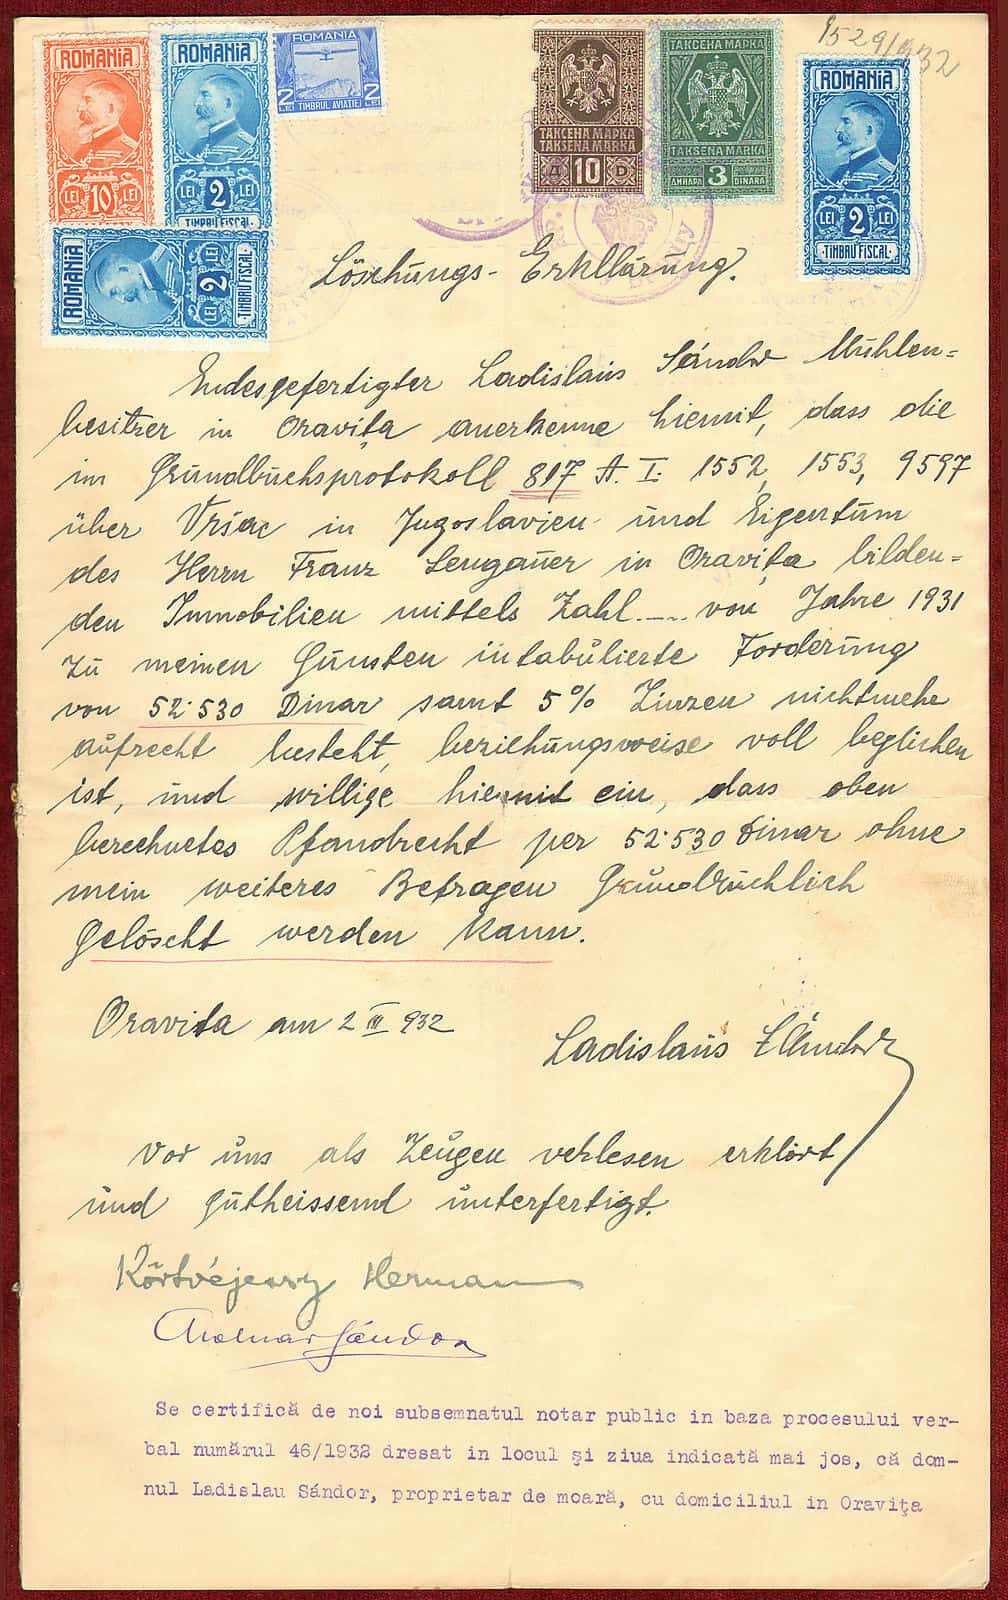 1529/932
ROMANIA
LEI 10 LEI
ROMANIA
LEI 2 LEI
TIMBRU FISCAL
ROMANIA
2 LEI TIMBRUL AVIATIEI 2 LEI
ТАКСЕНА МАРКА
TAKSENA MARKA
Д 10 D
ТАКСЕНА МАРКА
TAKSENA MARKA
ДИНАРА 3 DINARA
ROMANIA
LEI 2 LEI
TIMBRU FISCAL
ROMANIA
LEI 2 LEI
TIMBRU FISCAL
Löschungs-Erkllärung.
Endesgefertigter Ladislaus Sándor Mühlen=
besitzer in Oravița anerkenne hiemit, dass die
im Grundbuchsprotokoll 817 A. I. 1552, 1553, 9597
über Vršac in Jugoslavien und Eigentum
des Herrn Franz Lengauer in Oravița bilden=
den Immobilien mittels Zahl .... von Jahre 1931
zu meinen Gunsten intabulierte Forderung
von 52·530 Dinar samt 5% Zinzen nichtmehr
aufrecht besteht, beziehungsweise voll beglichen
ist, und willige hiemit ein, dass oben
berechnetes Pfandrecht per 52·530 Dinar ohne
mein weiteres Befragen Grundbüchlich
Gelöscht werden kann.
Oravita am 2 III 932
Ladislaus Sándor
Vor uns als Zeugen verlesen erklärt
und gutheissend unterfertigt.
Hermann
Molnar Sándor
Se certifică de noi subsemnatul notar public in baza procesului ver-
bal numărul 46/1932 dresat in locul și ziua indicată mai jos, că dom-
nul Ladislau Sándor, proprietar de moară, cu domiciliul in Oravița